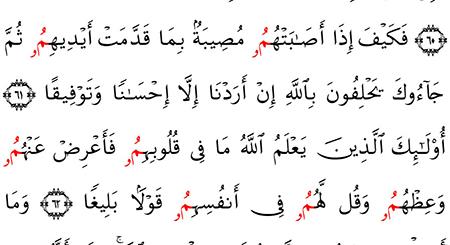 ﴿٦٠﴾ فَكَيْفَ إِذَا أَصَـٰبَتْهُمُۥ مُصِيبَةٌۢ بِمَا قَدَّمَتْ أَيْدِيهِمُۥ ثُمَّ
جَآءُوكَ يَحْلِفُونَ بِٱللَّهِ إِنْ أَرَدْنَا إِلَّا إِحْسَـٰنًا وَتَوْفِيقًا ﴿٦١﴾
أُو۟لَـٰٓئِكَ ٱلَّذِينَ يَعْلَمُ ٱللَّهُ مَا فِى قُلُوبِهِمُۥ فَأَعْرِضْ عَنْهُمُۥ
وَعِظْهُمُۥ وَقُل لَّهُمُۥ فِى أَنفُسِهِمُۥ قَوْلَۢا بَلِيغًا ﴿٦٢﴾ وَمَا